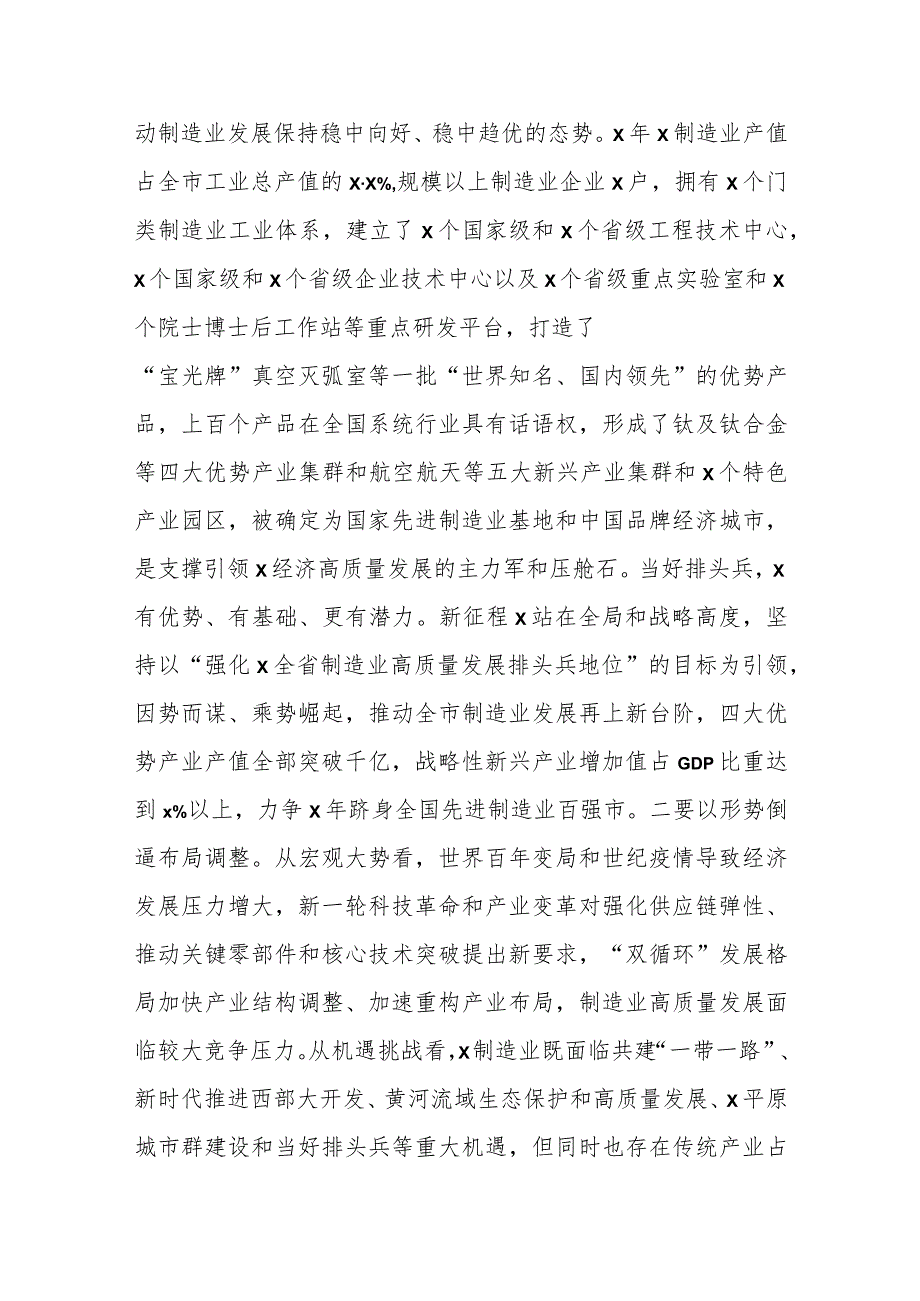 动制造业发展保持稳中向好、稳中趋优的态势。X年X制造业产值
占全市工业总产值的X·X%,规模以上制造业企业X户，拥有X个门
类制造业工业体系，建立了X个国家级和X个省级工程技术中心，
X个国家级和X个省级企业技术中心以及X个省级重点实验室和X
个院士博士后工作站等重点研发平台，打造了
“宝光牌”真空灭弧室等一批“世界知名、国内领先”的优势产
品，上百个产品在全国系统行业具有话语权，形成了钛及钛合金
等四大优势产业集群和航空航天等五大新兴产业集群和X个特色
产业园区，被确定为国家先进制造业基地和中国品牌经济城市，
是支撑引领X经济高质量发展的主力军和压舱石。当好排头兵，X
有优势、有基础、更有潜力。新征程X站在全局和战略高度，坚
持以“强化X全省制造业高质量发展排头兵地位”的目标为引领，
因势而谋、乘势崛起，推动全市制造业发展再上新台阶，四大优
势产业产值全部突破千亿，战略性新兴产业增加值占GDP比重达
到x%以上，力争X年跻身全国先进制造业百强市。二要以形势倒
逼布局调整。从宏观大势看，世界百年变局和世纪疫情导致经济
发展压力增大，新一轮科技革命和产业变革对强化供应链弹性、
推动关键零部件和核心技术突破提出新要求，“双循环”发展格
局加快产业结构调整、加速重构产业布局，制造业高质量发展面
临较大竞争压力。从机遇挑战看，X制造业既面临共建“一带一路”、
新时代推进西部大开发、黄河流域生态保护和高质量发展、X平原
城市群建设和当好排头兵等重大机遇，但同时也存在传统产业占